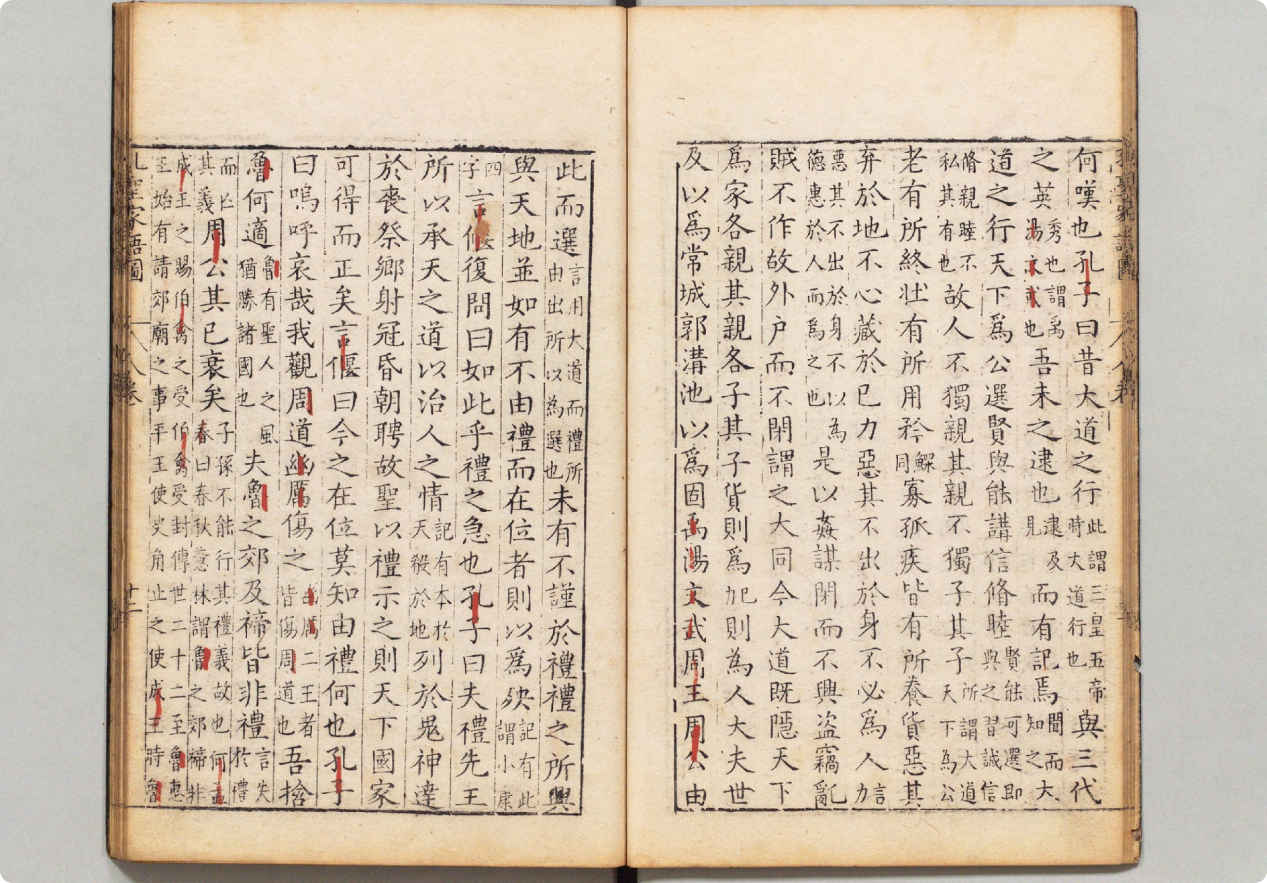 何嘆也孔子曰昔大道之行此謂三皇五帝時大道行也與三代
之英秀也謂禹湯文武也吾未之逮也逮及見而有記焉聞而知之大
道之行天下為公選賢與能講信脩睦賢能可選即與之習誠信所謂大道天下為公
脩親睦不私其有也故人不獨親其親不獨子其子
老有所終壯有所用矜鰥同寡孤疾皆有所養貨惡其
弃於地不心藏於已力惡其不出於身不必為人言力
惡其不出於身不以為德惠於人而為之也是以姦謀閉而不興盗竊亂
賊不作故外户而不閉謂之大同今大道既隱天下
為家各親其親各子其子貨則為已則為人大夫世
及以為常城郭溝池以為固禹湯文武周王周公由
此而選言用大道而禮所由出所以為選也未有不謹於禮禮之所興
與天地並如有不由禮而在位者則以為殃記有此謂小康
四字言偃復問曰如此乎禮之急也孔子曰夫禮先王
所以承天之道以治人之情記有本於天殺於地列於鬼神達
於喪祭鄉射冠昏朝聘故聖以禮示之則天下國家
可得而正矣言偃曰今之在位莫知由禮何也孔子
曰嗚呼哀哉我觀周道幽厲傷之幽厲二王者皆傷周道也吾捨
魯何適魯有聖人之風猶勝諸國也夫魯之郊及禘皆非禮言失於禮
而亡其義周公其已衰矣子孫不能行其禮義故也何孟春曰春秋意林謂魯之郊禘非
成王之賜伯禽之受伯禽受封傳世二十二至魯惠
至始有請郊廟之事平王使史角止之使成王時魯